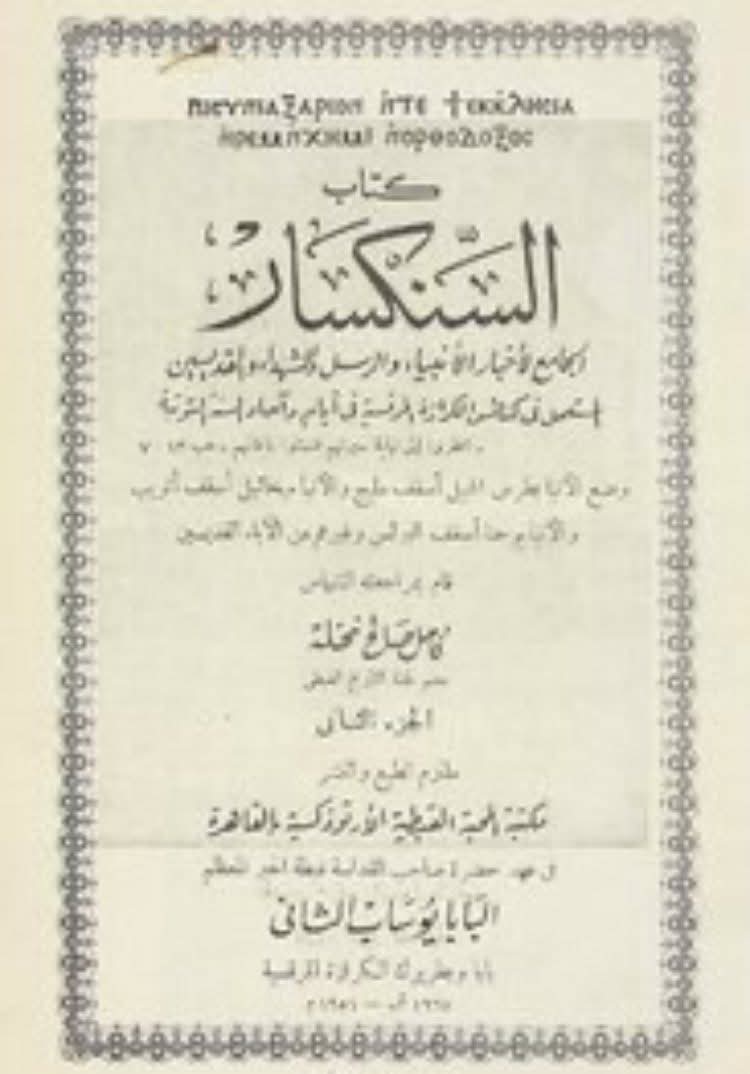 ⲡⲓⲥⲩⲛⲁⲝⲁⲣⲓⲟⲛ ⲛ̀ⲧⲉ ϯⲉⲕⲕⲗⲏⲥⲓⲁ
ⲛ̀ⲟⲣⲑⲟⲇⲟⲝⲟⲥ
كتاب
السنكسار
الجامع لأخبار الأنبياء والرسل والشهداء والقديسين
المستعمل فى كنائس الكرازة المرقسية فى أيام وآحاد السنة التوتية
وضع الأنبا بطرس الجميل أسقف مليج والأنبا ميخائيل أسقف أتريب
والأنبا يوحنا أسقف البرلس وغيرهم من الآباء القديسين
قام بمراجعته الشماس
كامل صالح نخلة
عضو لجنة التاريخ القبطى
الجزء الثانى
ملتزم الطبع والنشر
مكتبة المحبة القبطية الأرثوذكسية بالقاهرة
فى عهد حضرة صاحب القداسة غبطة الحبر المعظم
البابا يوساب الثانى
بابا وبطريرك الكرازة المرقسية